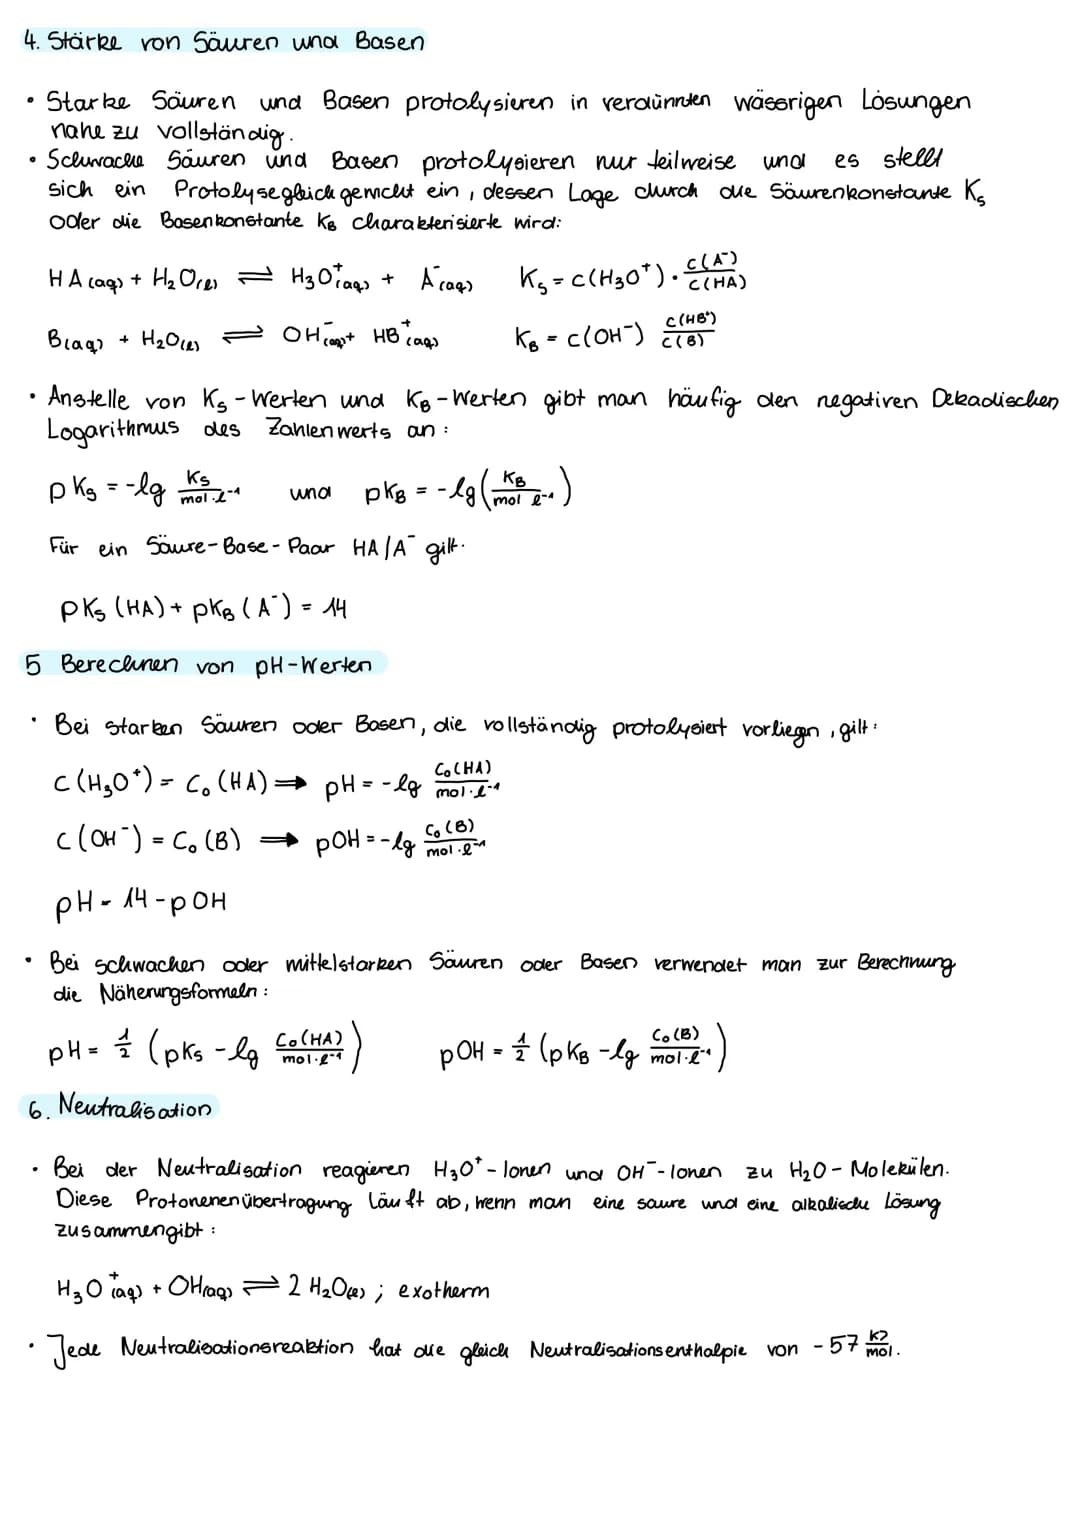 4. Stärke von Säuren und Basen
• Starke Säuren und Basen protolysieren in verdünnten wässrigen Lösungen
nahe zu vollständig.
• Schwache Säuren und Basen protolysieren nur teilweise und es stellt
sich ein Protolysegleichgewicht ein, dessen Lage durch die Säurenkonstante K_S
oder die Basenkonstante K_B charakterisierte wird:
HA(aq) + H₂O(l) ⇌ H₃O⁺(aq) + A⁻(aq)   K_S = c(H₃O⁺) · c(A⁻)/c(HA)
B(aq) + H₂O(l) ⇌ OH⁻(aq) + HB⁺(aq)   K_B = c(OH⁻) c(HB⁺)/c(B)
• Anstelle von K_S-Werten und K_B-Werten gibt man häufig den negativen Dekadischen
Logarithmus des Zahlenwerts an:
pK_S = -lg K_S/mol·l⁻¹   und   pK_B = -lg(K_B/mol l⁻¹)
Für ein Säure-Base-Paar HA/A⁻ gilt.
pK_S (HA) + pK_B (A⁻) = 14
5 Berechnen von pH-Werten
• Bei starken Säuren oder Basen, die vollständig protolysiert vorliegn, gilt:
c(H₃O⁺) = C₀(HA) ⟹ pH = -lg C₀(HA)/mol·l⁻¹
c(OH⁻) = C₀(B) ⟹ pOH = -lg C₀(B)/mol·l⁻¹
pH = 14 - pOH
• Bei schwachen oder mittelstarken Säuren oder Basen verwendet man zur Berechnung
die Näherungsformeln:
pH = ½ (pK_S - lg C₀(HA)/mol·l⁻¹)   pOH = ½ (pK_B - lg C₀(B)/mol·l⁻¹)
6. Neutralisation
• Bei der Neutralisation reagieren H₃O⁺-Ionen und OH⁻-Ionen zu H₂O-Molekülen.
Diese Protonenenübertragung läuft ab, wenn man eine saure und eine alkalische Lösung
zusammengibt:
H₃O⁺(aq) + OH(aq) ⇌ 2 H₂O(l) ; exotherm
• Jede Neutralisationsreaktion hat die gleich Neutralisationsenthalpie von -57 kJ/mol.